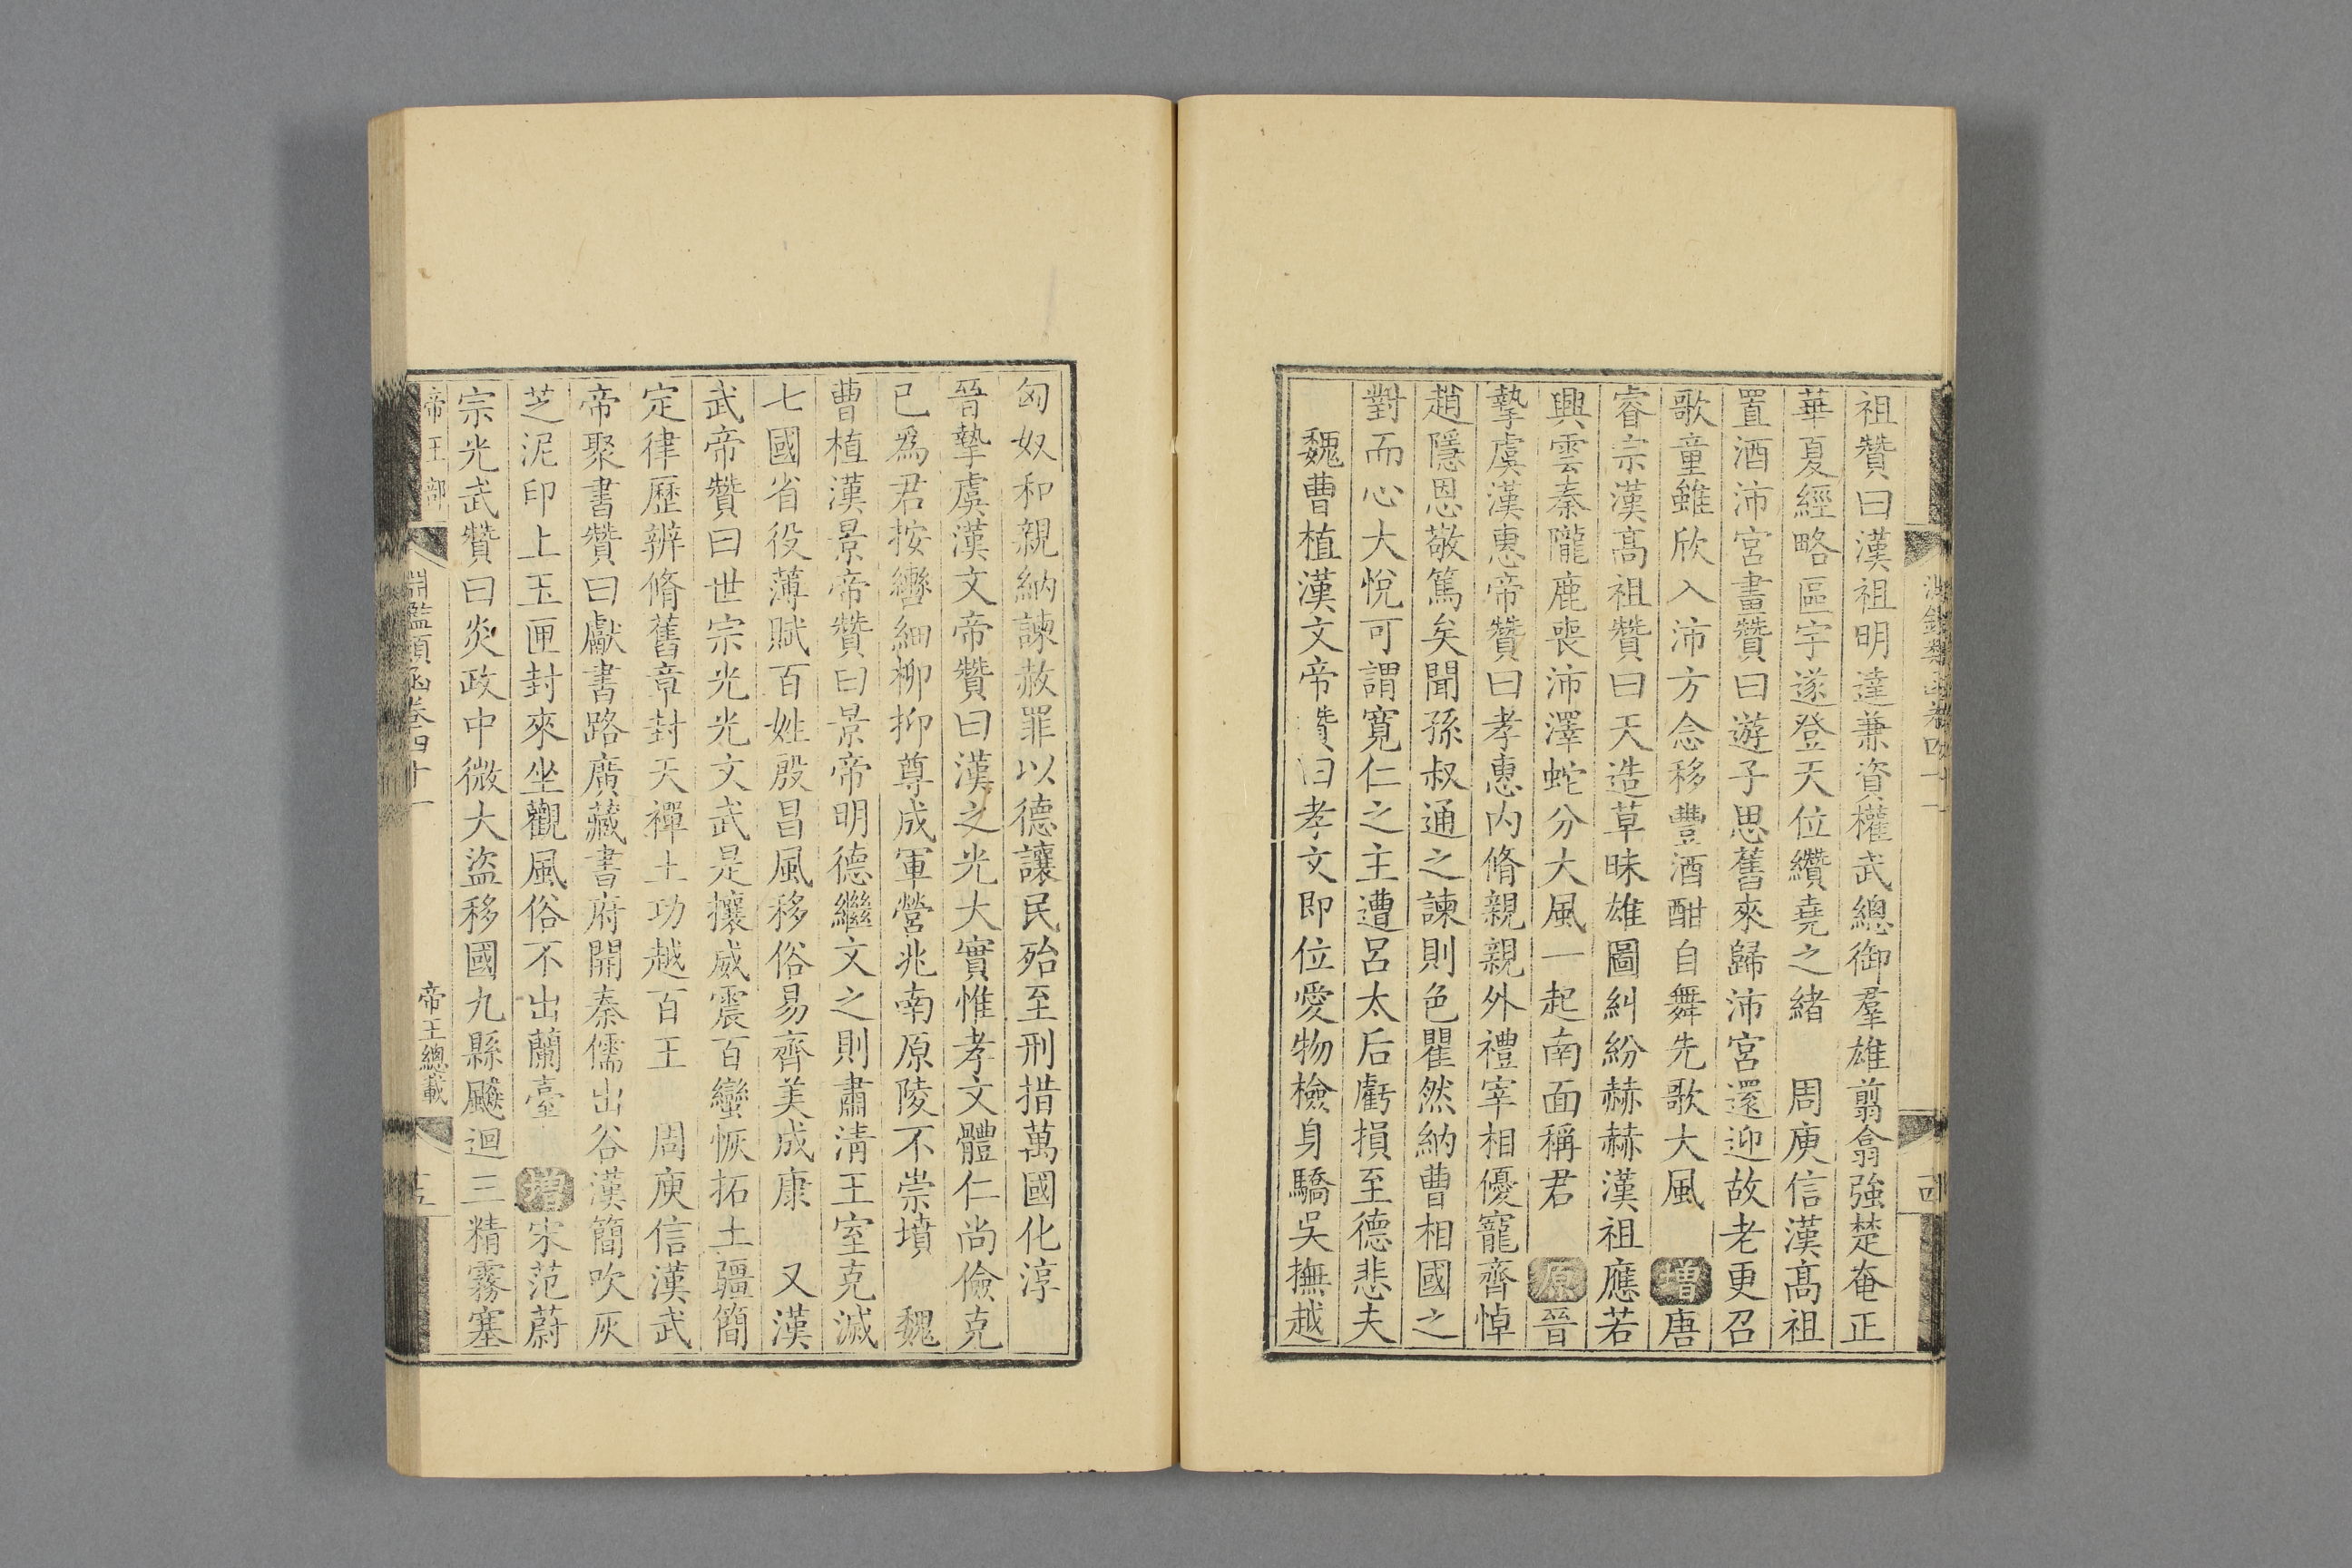 祖贊曰漢祖明達兼資權武總御羣雄翦翕強楚奄正
華夏經略區宇遂登天位纘堯之緒　周庾信漢高祖
置酒沛宮畫贊曰遊子思舊來歸沛宮還迎故老更召
歌童雖欣入沛方念移豐酒酣自舞先歌大風　增唐
睿宗漢高祖贊曰天造草昧雄圖糾紛赫赫漢祖應若
興雲秦隴鹿喪沛澤蛇分大風一起南面稱君　原晉
摯虞漢惠帝贊曰孝惠內脩親親外禮宰相優寵齊悼
趙隱恩敬篤矣聞孫叔通之諫則色瞿然納曹相國之
對而心大悅可謂寬仁之主遭呂太后虧損至德悲夫
魏曹植漢文帝贊曰孝文即位愛物檢身驕吳撫越
匈奴和親納諫赦罪以德讓民殆至刑措萬國化淳
晉摯虞漢文帝贊曰漢之光大實惟孝文體仁尚儉克
己爲君按轡細柳抑尊成軍營兆南原陵不崇墳　魏
曹植漢景帝贊曰景帝明德繼文之則肅清王室克滅
七國省役薄賦百姓殷昌風移俗易齊美成康　又漢
武帝贊曰世宗光光文武是攘威震百蠻恢拓土疆簡
定律歷辨脩舊章封天禪土功越百王　周庾信漢武
帝聚書贊曰獻書路廣藏書府開秦儒出谷漢簡吹灰
芝泥印上玉匣封來坐觀風俗不出蘭臺　增宋范蔚
宗光武贊曰炎政中微大盜移國九縣飇迴三精霧塞
帝王部　淵鑑類函卷四十一　帝王總載　十五